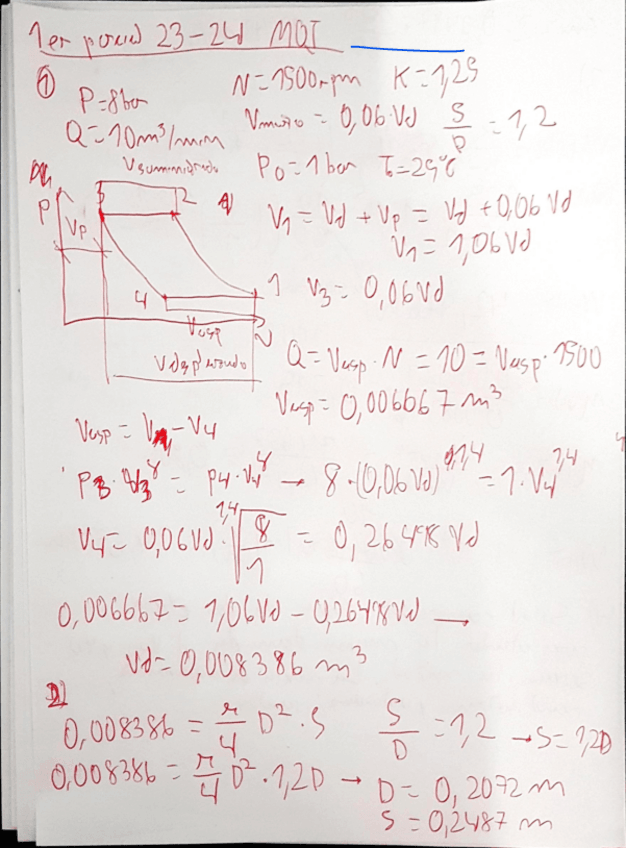 1er parcial 23-24 MQT
① P=8bar N=1500rpm K=1,25
Q=10m³/min Vmuerto = 0,06·Vd S/D = 1,2
Vsuministrado P0=1bar T=25ºC
P Vp 3 2 V1 = Vd + Vp = Vd + 0,06Vd
V1 = 1,06Vd
4 1 V3 = 0,06Vd
Vasp
Vdesplazado Q = Vasp·N = 10 = Vasp·1500
Vasp = 0,006667 m³
Vasp = V1 - V4
P3·V3^γ = P4·V4^γ → 8·(0,06Vd)^1,4 = 1·V4^1,4
V4 = 0,06Vd · 1,4√(8/1) = 0,26498Vd
0,006667 = 1,06Vd - 0,26498Vd →
Vd = 0,008386 m³
2)
0,008386 = π/4 D²·S S/D = 1,2 → S = 1,2D
0,008386 = π/4 D²·1,2D → D = 0,2072 m
S = 0,2487 m